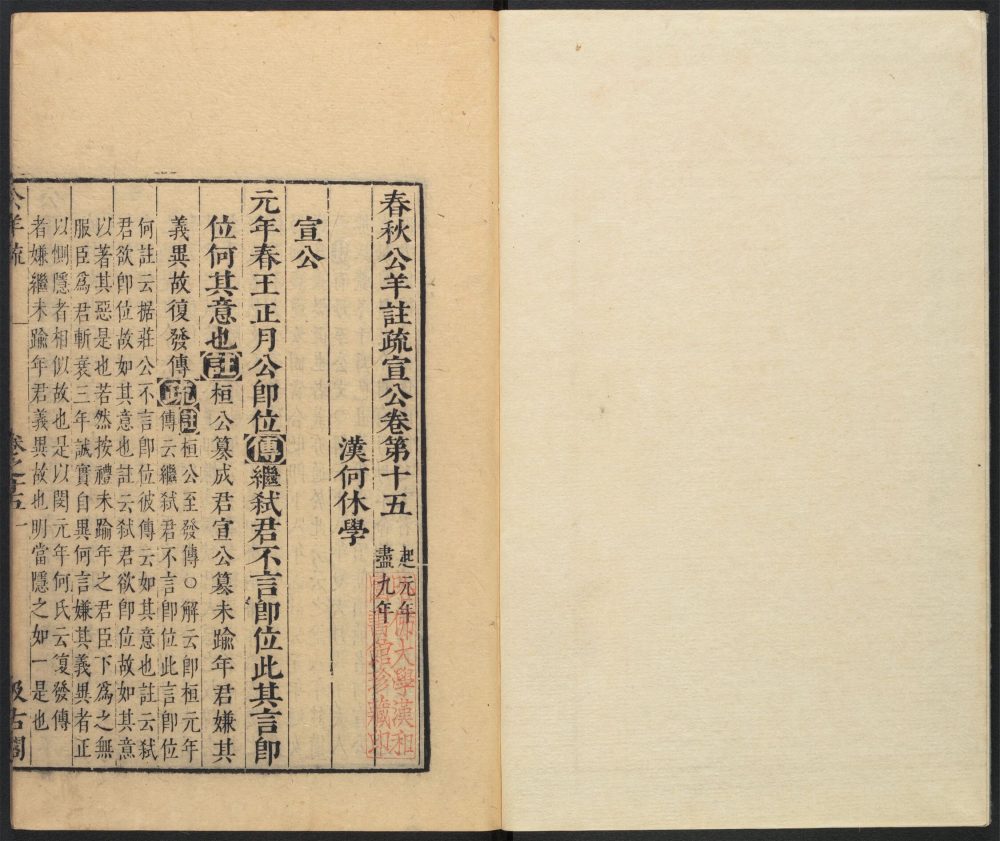 春秋公羊註疏宣公卷第十五
起元年
盡九年
漢何休學
宣公
元年春王正月公卽位傳繼弑君不言卽位此其言卽
位何其意也註桓公篡成君宣公篡未踰年君嫌其
義異故復發傳疏註桓公至發傳○解云卽桓元年
傳云繼弑君不言卽位此言卽位
何註云据莊公不言卽位彼傳云如其意也註云弑
君欲卽位故如其意也註云弑君欲卽位故如其意
以著其惡是也若然按禮未踰年之君臣下爲之無
服臣爲君斬衰三年誠實自異何言嫌其義異者正
以惻隱者相似故也是以閔元年何氏云復發傳
者嫌繼未踰年君義異故也明當隱之如一是也
公羊疏
卷之十五
一
汲古閣
哈佛大學漢和
圖書館珍藏印